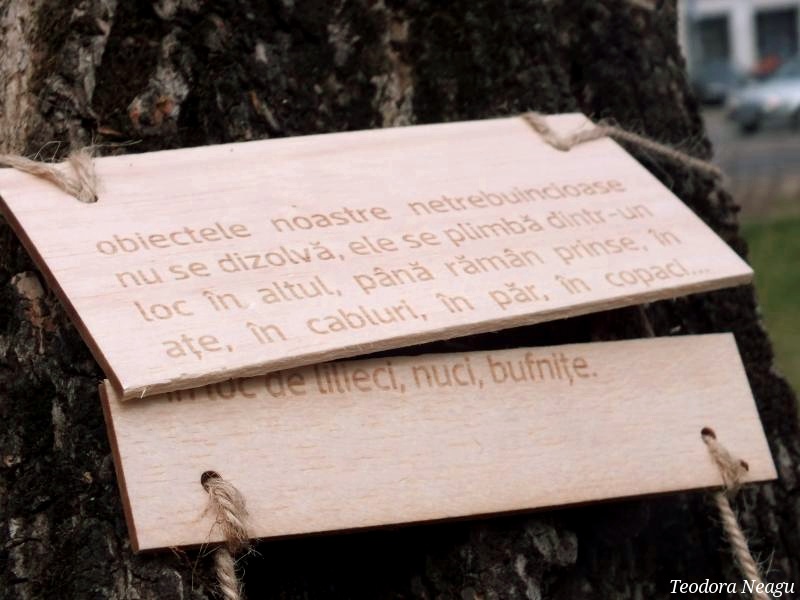 obiectele noastre netrebuincioase
nu se dizolvă, ele se plimbă dintr-un
loc în altul, până rămân prinse, în
ațe, în cabluri, în păr, în copaci...
în loc de lilieci, nuci, bufnițe.
Teodora Neagu